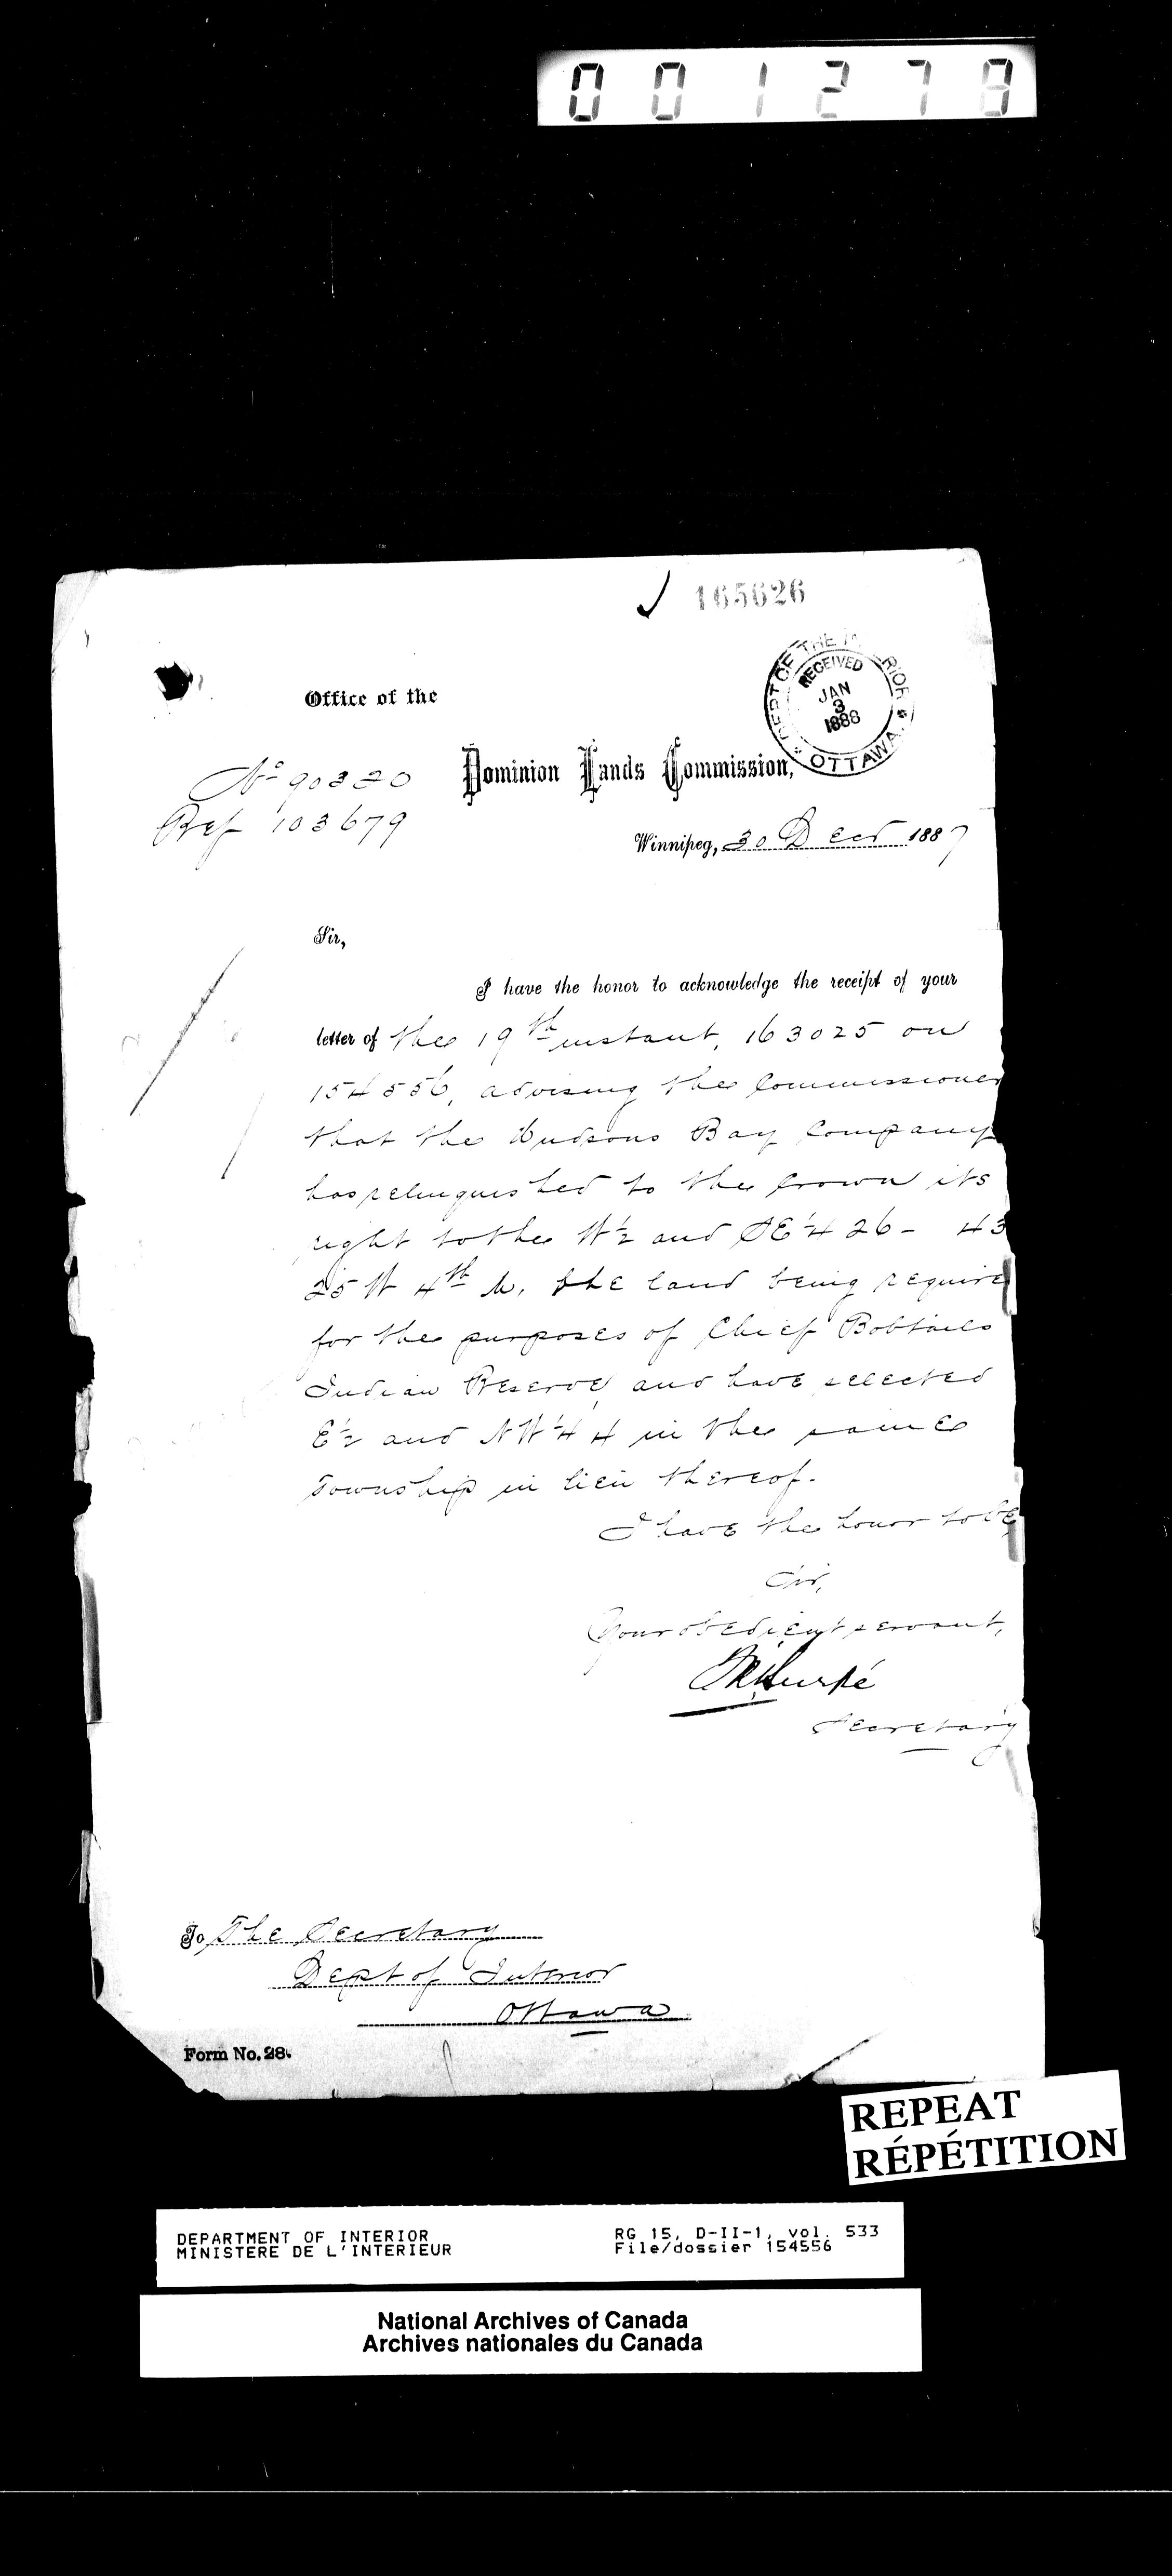 001278
165626
DEPT OF THE INTERIOR
RECEIVED
JAN
3
1888
OTTAWA
Office of the
Dominion Lands Commission,
No 90320
Ref 103679
Winnipeg, 30 Decr 1887
Sir,
I have the honor to acknowledge the receipt of your
letter of the 19th instant, 163025 on
154556, advising the Commissioner
that the Hudsons Bay Company
has relinquished to the Crown its
right to the W½ and SE¼ 26 - 43
25 W 4th M, the land being require
for the purposes of Chief Bobtails
Indian Reserve, and have selected
E½ and NW¼ 4 in the same
Township in lieu thereof.
I have the honor to be
Sir,
Your obedient servant,
Secretary
To The Secretary
Dept of Interior
Ottawa
Form No. 28.
REPEAT
RÉPÉTITION
DEPARTMENT OF INTERIOR
MINISTERE DE L'INTERIEUR
RG 15, D-II-1, vol. 533
File/dossier 154556
National Archives of Canada
Archives nationales du Canada